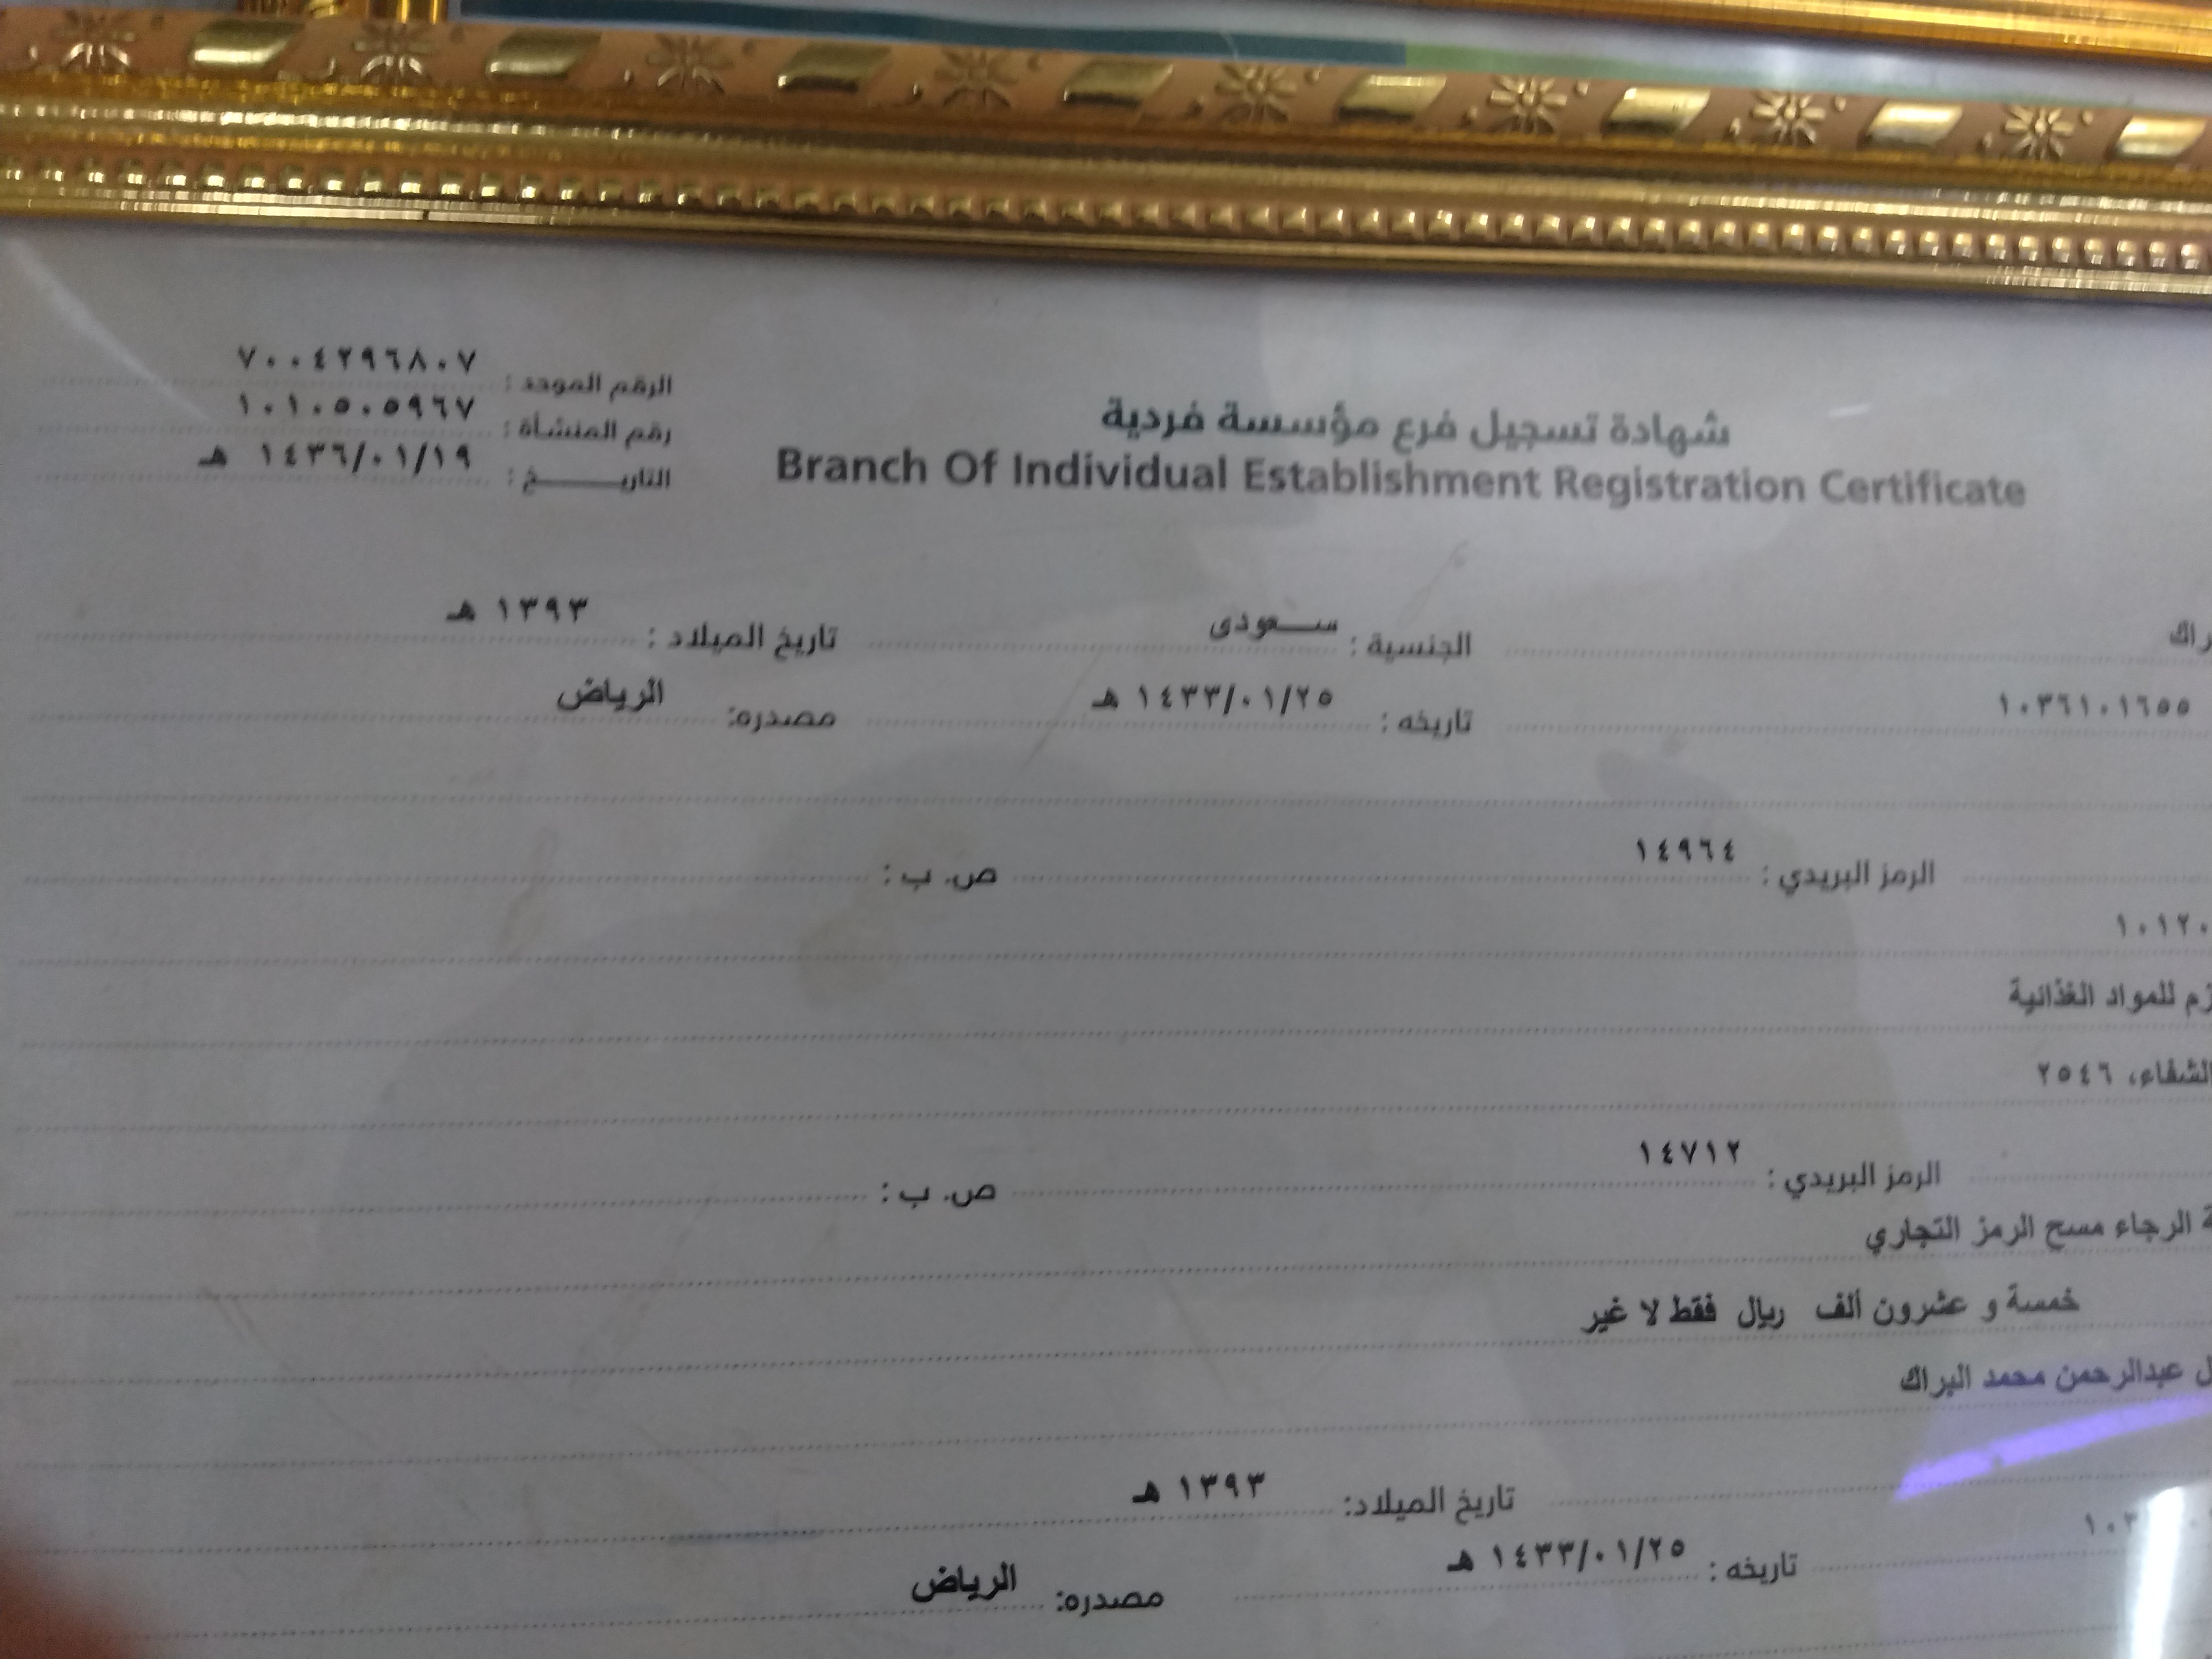 الرقم الموحد : ٧٠٠٤٢٩٦٨٠٧
رقم المنشأة : ١٠١٠٥٠٥٩٦٧
التاريـــــــخ : ١٤٣٦/٠١/١٩ هـ
شهادة تسجيل فرع مؤسسة فردية
Branch Of Individual Establishment Registration Certificate
راك الجنسية : ســـعودى تاريخ الميلاد : ١٣٩٣ هـ
١٠٣٦١٠١٦٥٥ تاريخه : ١٤٣٣/٠١/٢٥ هـ مصدره: الرياض
الرمز البريدي : ١٤٩٦٤ ص. ب :
١٠١٢٠
زم للمواد الغذائية
الشفاء، ٢٥٤٦
الرمز البريدي : ١٤٧١٢ ص. ب :
ة الرجاء مسح الرمز التجاري
خمسة و عشرون ألف ريال فقط لا غير
ل عبدالرحمن محمد البراك
تاريخ الميلاد: ١٣٩٣ هـ
تاريخه : ١٤٣٣/٠١/٢٥ هـ مصدره: الرياض